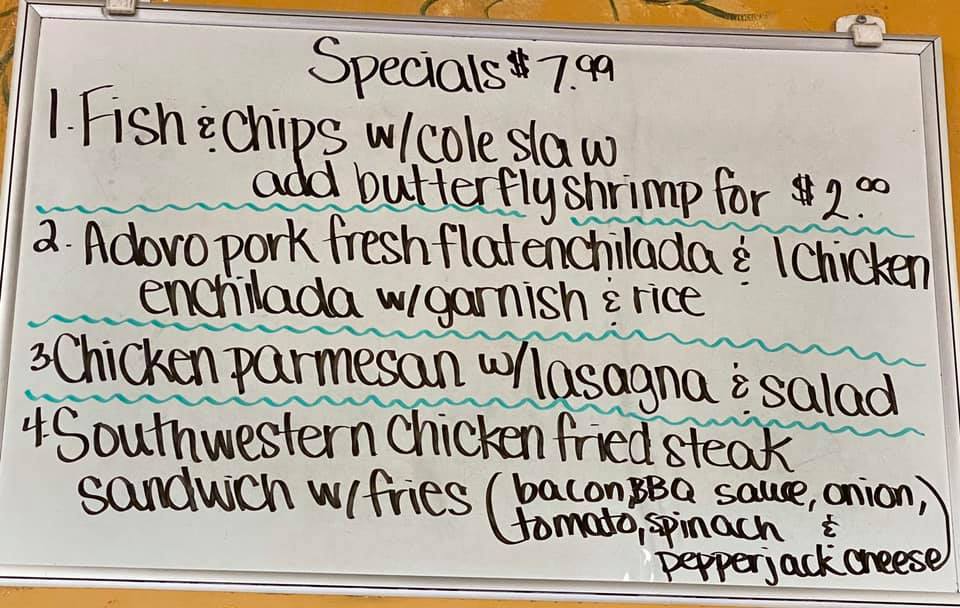 Specials $7.99
1. Fish & Chips w/cole slaw
add butterfly shrimp for $2.00
2. Adovo pork fresh flat enchilada & 1 Chicken
enchilada w/garnish & rice
3 Chicken parmesan w/lasagna & salad
4 Southwestern chicken fried steak
sandwich w/fries (bacon, BBQ sauce, onion,
tomato, spinach &
pepperjack cheese)